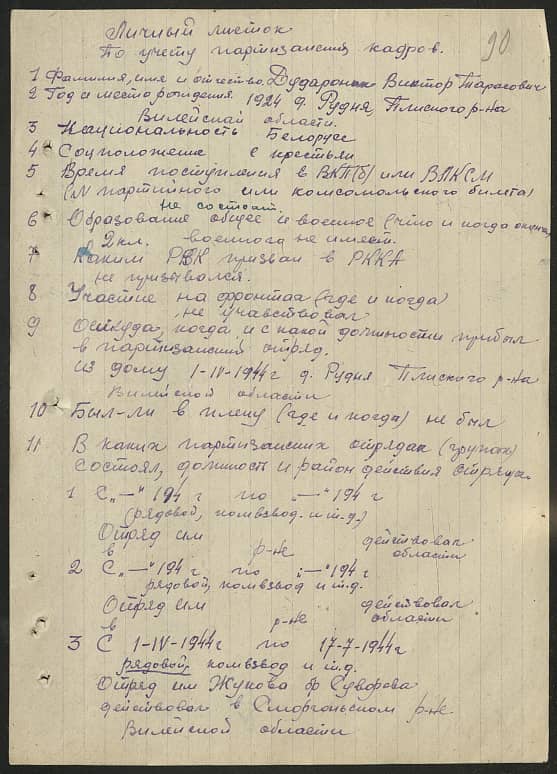 Личный листок
По учету партизанских кадров.
90
1 Фамилия, имя и отчество. Дударонак Виктор Тарасович
2 Год и место рождения. 1924 д. Рудня, Плиского р-на
Вилейской области.
3 Национальность Белорус
4 Соцположение с крестьян
5 Время поступления в ВКП(б) или ВЛКСМ
(N партийного или комсомольского билета)
не состоит.
6 Образование общее и военное (что и когда окончил)
2 кл. военного не имеет.
7 Каким РВК призван в РККА
не призывался.
8 Участие на фронтах (где и когда)
не учавствовал
9 Откуда, когда и с какой должности прибыл
в партизанский отряд.
из дому 1-IV-1944г д. Рудня Плиского р-на
Вилейской области
10 Был-ли в плену (где и когда) не был
11 В каких партизанских отрядах (групах)
состоял, должность и район действия отряда.
1 С „—“ 194 г по „—“ 194 г
(рядовой, комвзвод. и т.д.)
Отряд им действовал
в р-не области
2 С „—“ 194 г по „—“ 194 г
рядовой, комвзвод и т.д.
Отряд им действовал
в р-не области
3 С 1-IV-1944г по 17-7-1944г
рядовой, комвзвод и т.д.
Отряд им Жукова бр Суворова
действовал в Сморгоньском р-не
Вилейской области